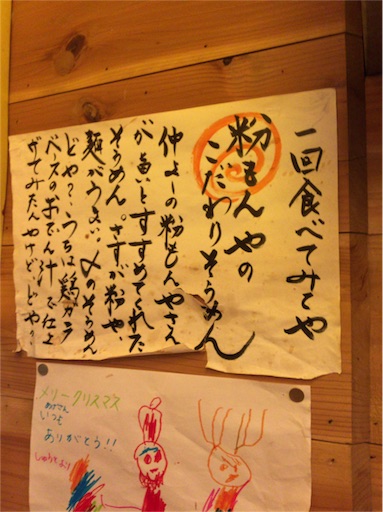 一回食べてみてや
粉もんやの
こだわりそうめん
仲よしの粉もんやさん
が良いとすすめてくれた
そうめん。さすが粉や、
麺がうまい、〆のそうめん
どや?、うちは鶏ガラ
ベースのおでん汁で仕上
げてみたんやけど、どや。
メリークリスマス
おかさん
いつも
ありがとう!!